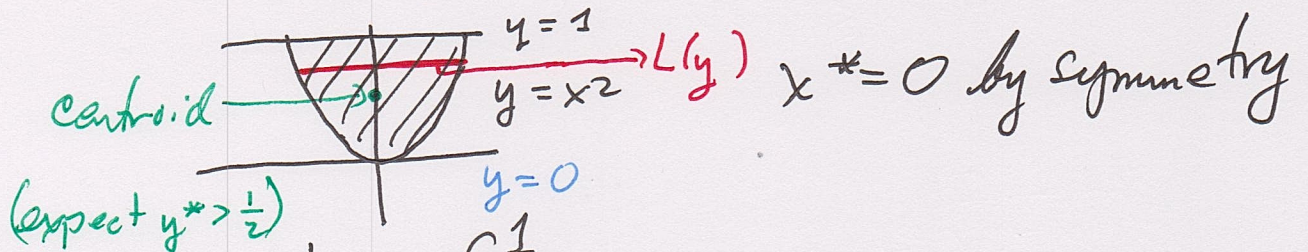 y = 1
L(y)
y = x2
x* = 0 by symmetry
centroid
y = 0
(expect y* > 1/2)
1